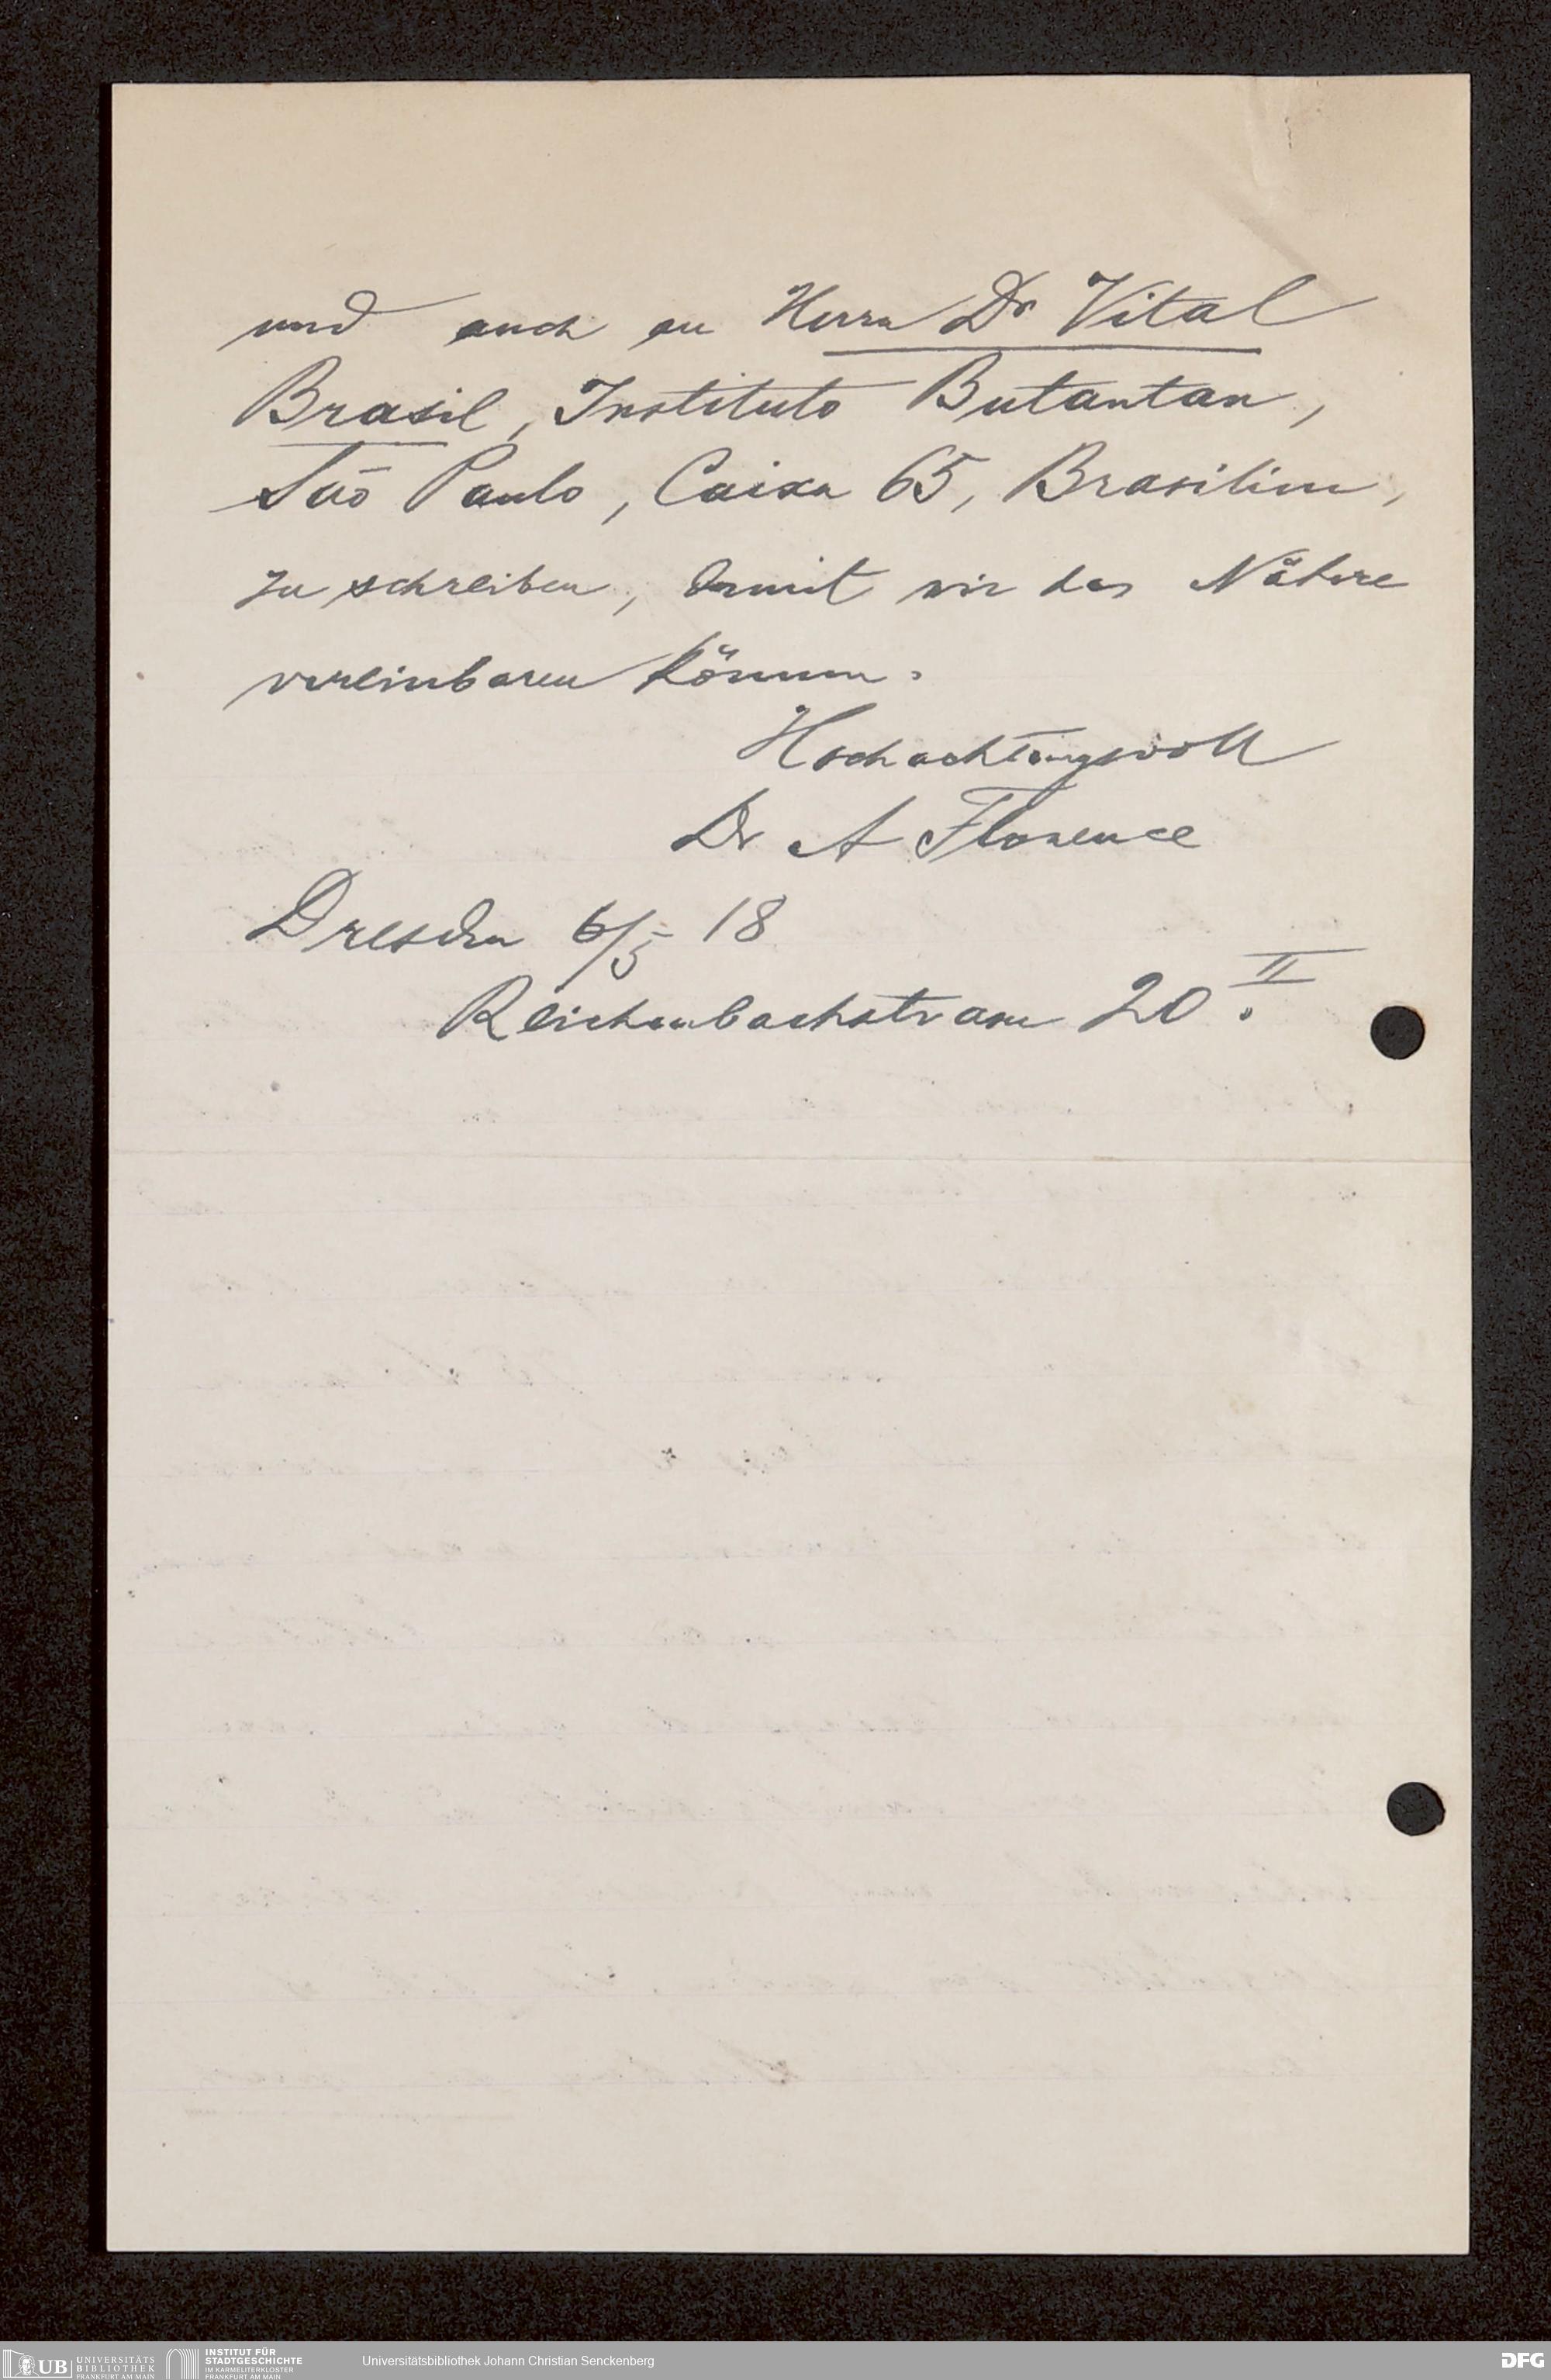 und auch an Herrn Dr Vital
Brasil, Instituto Butantan,
São Paulo, Caixa 65, Brasilien,
zu schreiben, damit wir das Nähere
vereinbaren können.
Hochachtungsvoll
Dr A Florence
Dresden 6/5 18
Reichenbachstrasse 20 II.
UB UNIVERSITÄTS BIBLIOTHEK FRANKFURT AM MAIN
INSTITUT FÜR STADTGESCHICHTE IM KARMELITERKLOSTER FRANKFURT AM MAIN
Universitätsbibliothek Johann Christian Senckenberg
DFG